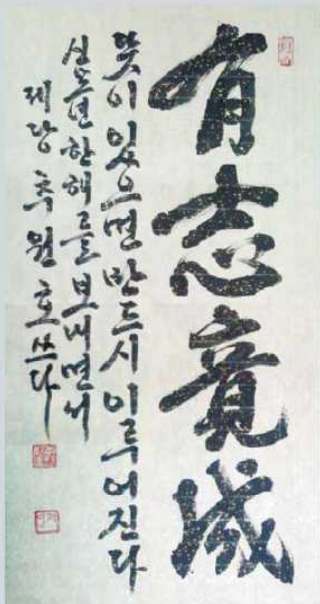 有志竟成
뜻이 있으면 반드시 이루어진다
신묘년 한해를 보내면서
추원호 쓰다